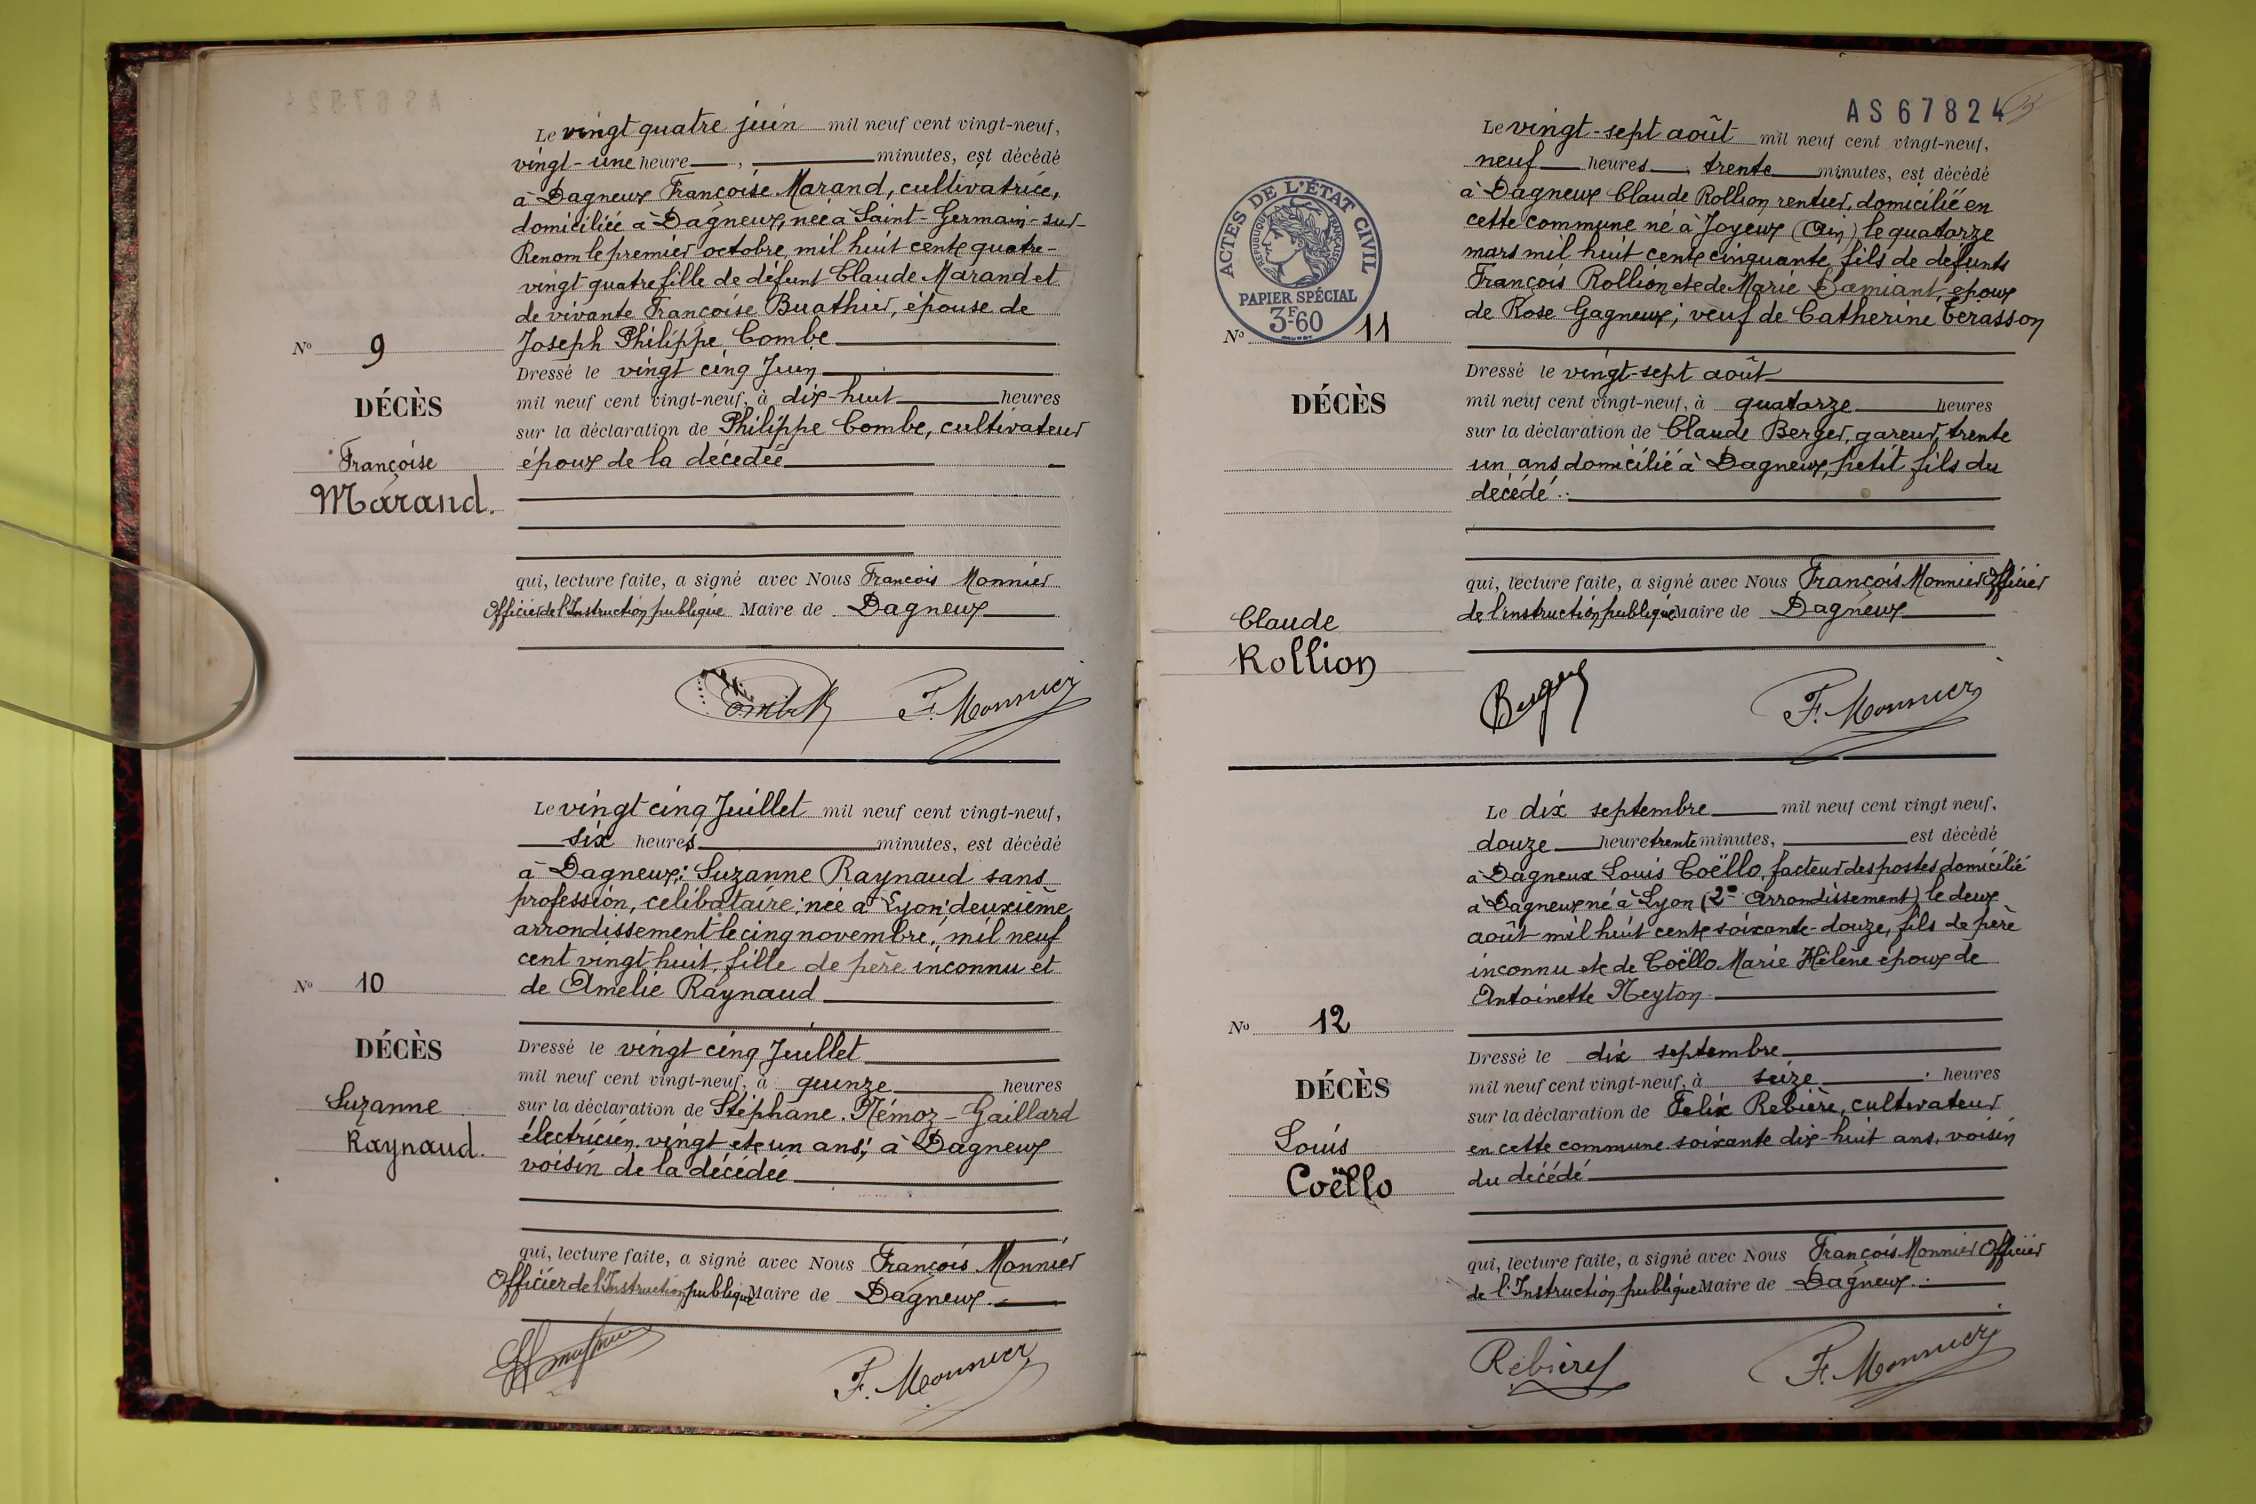 Le vingt quatre juin mil neuf cent vingt-neuf,
vingt-une heure , minutes, est décédé
à Dagneux Françoise Marand, cultivatrice,
domiciliée à Dagneux, née à Saint-Germain-sur-
Renom le premier octobre, mil huit cent quatre-
vingt quatre fille de défunt Claude Marand et
de vivante Françoise Buathier, épouse de
Nº 9
Joseph Philippe Combe
Dressé le vingt cinq Juin
DÉCÈS
mil neuf cent vingt-neuf, à dix-huit heures
sur la déclaration de Philippe Combe, cultivateur
Françoise
époux de la décédée
Marand.
qui, lecture faite, a signé avec Nous François Monnier
Officier de l'Instruction publique Maire de Dagneux
F. Monnier
Le vingt cinq Juillet mil neuf cent vingt-neuf,
six heures minutes, est décédé
à Dagneux; Suzanne Raynaud sans
profession, célibataire; née à Lyon; deuxième
arrondissement le cinq novembre, mil neuf
cent vingt huit, fille de père inconnu et
Nº 10
de Amélie Raynaud
DÉCÈS
Dressé le vingt cinq Juillet
mil neuf cent vingt-neuf, à quinze heures
Suzanne
sur la déclaration de Stéphane Némoz-Gaillard
Raynaud.
électricien, vingt et un ans; à Dagneux
voisin de la décédée
qui, lecture faite, a signé avec Nous François Monnier
Officier de l'Instruction publique Maire de Dagneux.
F. Monnier
AS 67824
Le vingt-sept août mil neuf cent vingt-neuf,
neuf heures , trente minutes, est décédé
à Dagneux Claude Rollion rentier, domicilié en
cette commune né à Joyeux (Ain) le quatorze
mars mil huit cent cinquante, fils de défunts
François Rollion et de Marie Damiant, époux
de Rose Gagneux; veuf de Catherine Térasson
ACTES DE L'ÉTAT CIVIL
RÉPUBLIQUE FRANÇAISE
PAPIER SPÉCIAL
3F.60
Nº 11
Dressé le vingt-sept août
DÉCÈS
mil neuf cent vingt-neuf, à quatorze heures
sur la déclaration de Claude Berger, gareur, trente
un ans domicilié à Dagneux, petit fils du
décédé.
qui, lecture faite, a signé avec Nous François Monnier Officier
de l'instruction publique Maire de Dagneux
Claude
Rollion
Berger
F. Monnier
Le dix septembre mil neuf cent vingt neuf,
douze heure trente minutes, est décédé
à Dagneux Louis Coëllo, facteur des postes domicilié
à Dagneux né à Lyon (2e Arrondissement) le deux
août mil huit cent soixante-douze, fils de père
inconnu et de Coëllo Marie Hélène époux de
Antoinette Neyton
Nº 12
Dressé le dix septembre
DÉCÈS
mil neuf cent vingt-neuf, à seize heures
sur la déclaration de Felix Rebière, cultivateur
Louis
en cette commune soixante dix-huit ans, voisin
Coëllo
du décédé
qui, lecture faite, a signé avec Nous François Monnier Officier
de l'Instruction publique Maire de Dagneux.
Rebière
F. Monnier